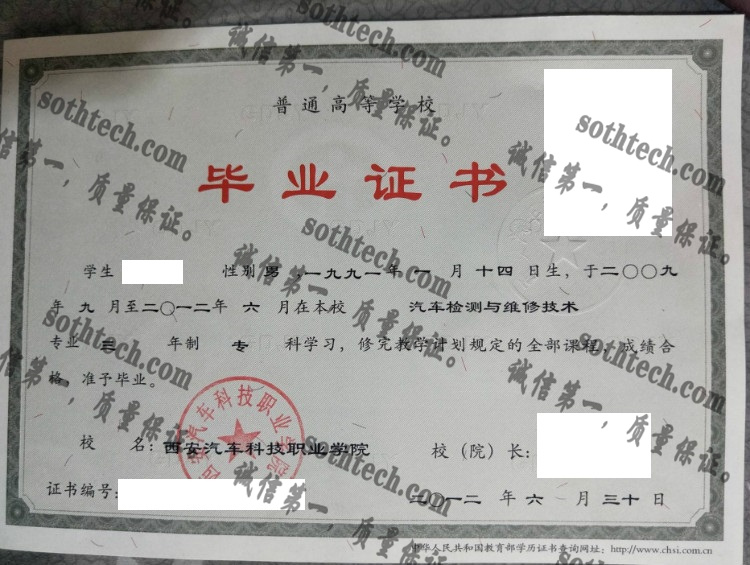 普通高等学校
毕业证书
学生 性别 男 ，一九九一年 一 月 十四 日生，于二〇〇九
年 九 月至二〇一二年 六 月在本校 汽车检测与维修技术
专业 三 年制 专 科学习，修完教学计划规定的全部课程，成绩合
格，准予毕业。
校 名：西安汽车科技职业学院 校（院）长：
证书编号： 二〇一二 年 六 月 三十 日
中华人民共和国教育部学历证书查询网址：http://www.chsi.com.cn
西安汽车科技职业学院
sothtech.com
诚信第一，质量保证。
sothtech.com
诚信第一，质量保证。
sothtech.com
诚信第一，质量保证。
sothtech.com
诚信第一，质量保证。
sothtech.com
诚信第一，质量保证。
sothtech.com
诚信第一，质量保证。
sothtech.com
诚信第一，质量保证。